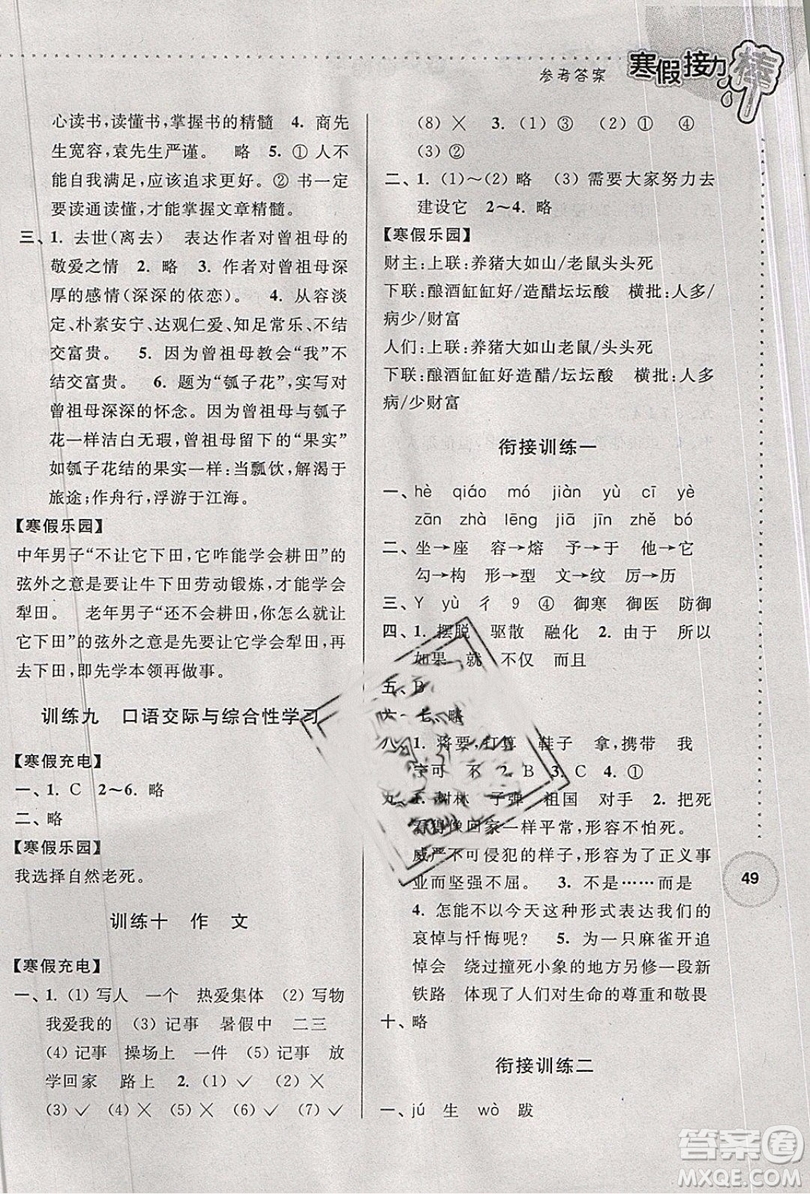 参考答案
寒假接力棒
心读书,读懂书,掌握书的精髓 4. 商先
生宽容,袁先生严谨。 略 5. ① 人
不能自我满足,应该追求更好。② 书一定
要读通读懂,才能掌握文章精髓。
三、1. 去世(离去) 表达作者对曾祖母的
敬爱之情 2. 略 3. 作者对曾祖母深
厚的感情(深深的依恋)。 4. 从容淡
定、朴素安宁、达观仁爱、知足常乐、不结
交富贵。 5. 因为曾祖母影响“我”不结
交富贵。 6. 题为“瓠子花”,寄托了我
对曾祖母深深的怀念。曾祖母像瓠子
花一样洁白无瑕,曾祖母留下的“果实”
如瓠子花结的果实一样:当瓢饮,解渴于
旅途;作舟行,浮游于江海。
【寒假乐园】
中年男子“不让它下田,它咋能学会耕田”的
弦外之意是要让牛下田劳动锻炼,才能学会
犁田。 老年男子“还不会耕田,你怎么就让
它下田”的弦外之意是先让牛学会犁田,再
去下田,即先学本领再做事。
训练九 口语交际与综合性学习
【寒假充电】
一、1. C 2~6. 略
二、略
【寒假乐园】
我选择自然老死。
训练十 作 文
【寒假充电】
一、1. (1) 写人 一个 热爱集体 (2) 写物
我爱我的 (3) 记事 暑假中 二三
(4) 记事 操场上 一件 (5) 记事 放
学回家 路上 2. (1) ✓ (2) ×
(3) ✓ (4) ✓ (5) ✓ (6) ✓ (7) ✓
(8) × 3. (1) ③ (2) ① ④
(3) ②
二、1. (1)~(2) 略 (3) 需要大家努力去
建设它 2~4. 略
【寒假乐园】
财主:上联:养猪大如山/老鼠头头死
下联:酿酒缸缸好/造醋坛坛酸 横批:人多/
病少/财富
人们:上联:养猪大如山老鼠/头头死
下联:酿酒缸缸好造醋/坛坛酸 横批:人多
病/少财富
衔接训练一
一、hè qiáo mó jiàn yù cī yī
zān zhà lēng jiā jīn zhé mò
二、坐→座 容→熔 予→于 他→它
勾→构 型→形 文→纹
三、Y yù 彳 9 ④ 御寒 御医 防御
四、1. 摆脱 驱散 融化 2. 由于 所以
如果 就 不仅 而且
五、B
六~七、略
八、1. 将要,打算 鞋子 拿,携带 我
宁可 不 2. B 3. ② 4. ①
九、1. 树林 子弹 祖国 对手 2. 把死
看得像回家一样平常,形容不怕死。
威严不可侵犯的样子,形容为了正义事
业而坚强不屈。 3. 不是……而是
4. 怎能不以今天这种形式表达我们的
哀悼与忏悔呢? 5. 为一只麻雀开追
悼会 绕过撞死小象的地方另修一条新
铁路 体现了人们对生命的尊重和敬畏
十、略
衔接训练二
一、jú 生 wò 跋
49
答案圈
MXQE.COM